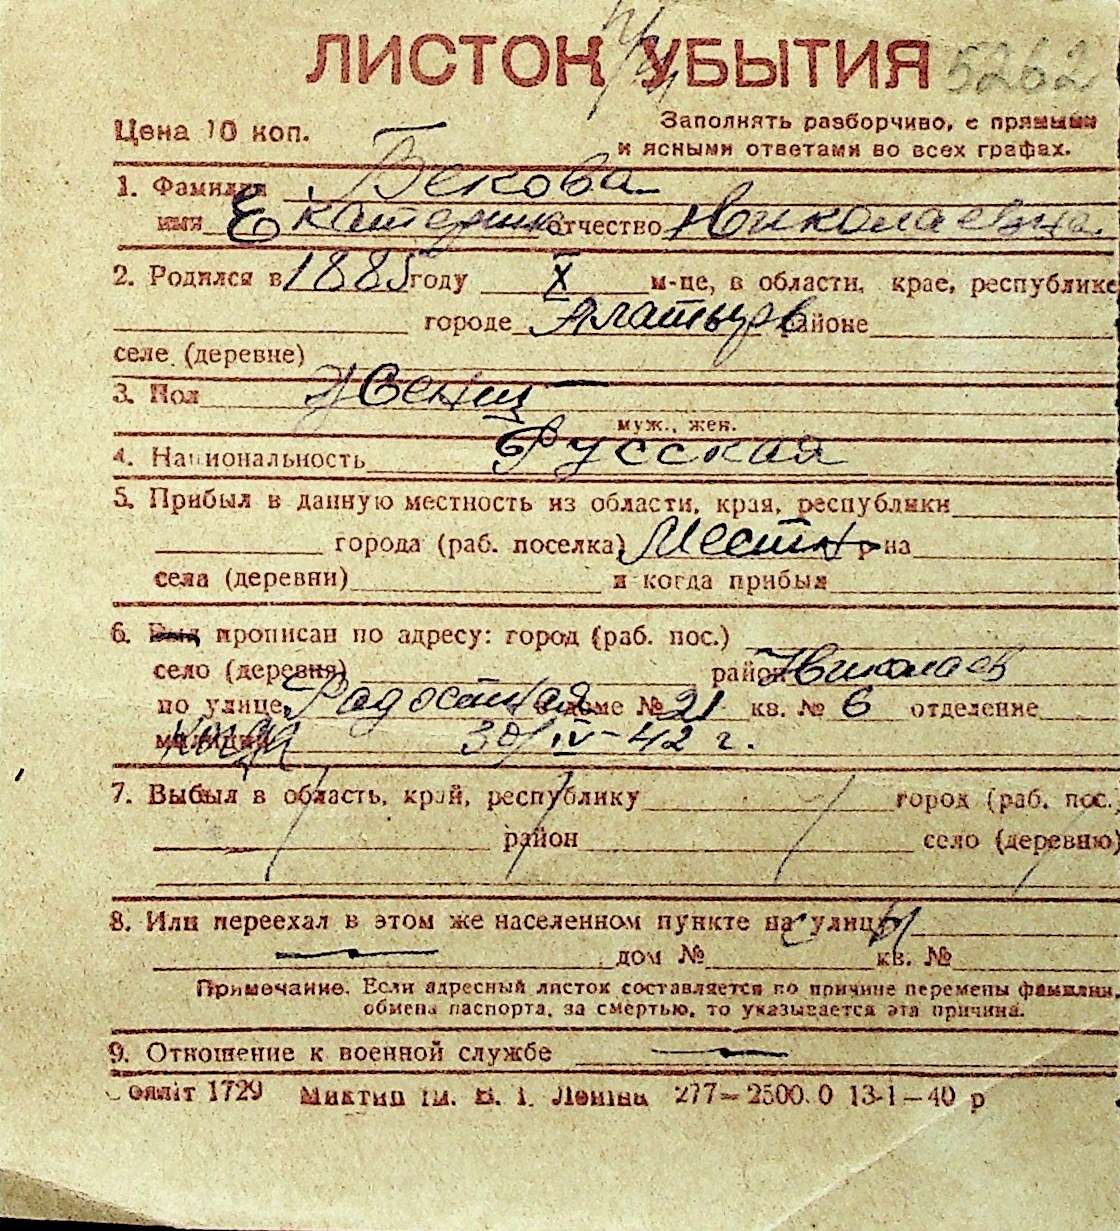 ЛИСТОК УБЫТИЯ 5262
Цена 10 коп.
Заполнять разборчиво, с прямыми
и ясными ответами во всех графах.
1. Фамилия Бекова
имя Екатерина отчество Николаевна
2. Родился в 1885 году X м-це, в области, крае, республике
городе Алатырь районе
селе (деревне)
3. Пол Женщ
муж., жен.
4. Национальность Русская
5. Прибыл в данную местность из области, края, республики
города (раб. поселка) Местн р-на
села (деревни) и когда прибыл
6. Был прописан по адресу: город (раб. пос.)
село (деревня) район Николаев
по улице Радостная доме № 21 кв. № 6 отделение
милиции когда 30/IV-42 г.
7. Выбыл в область, край, республику город (раб. пос.)
район село (деревню)
8. Или переехал в этом же населенном пункте на с улицы
дом № кв. №
Примечание. Если адресный листок составляется по причине перемены фамилии,
обмена паспорта, за смертью, то указывается эта причина.
9. Отношение к военной службе
1729 ім. В. І. Леніна 277—2500.0 13-1—40 р